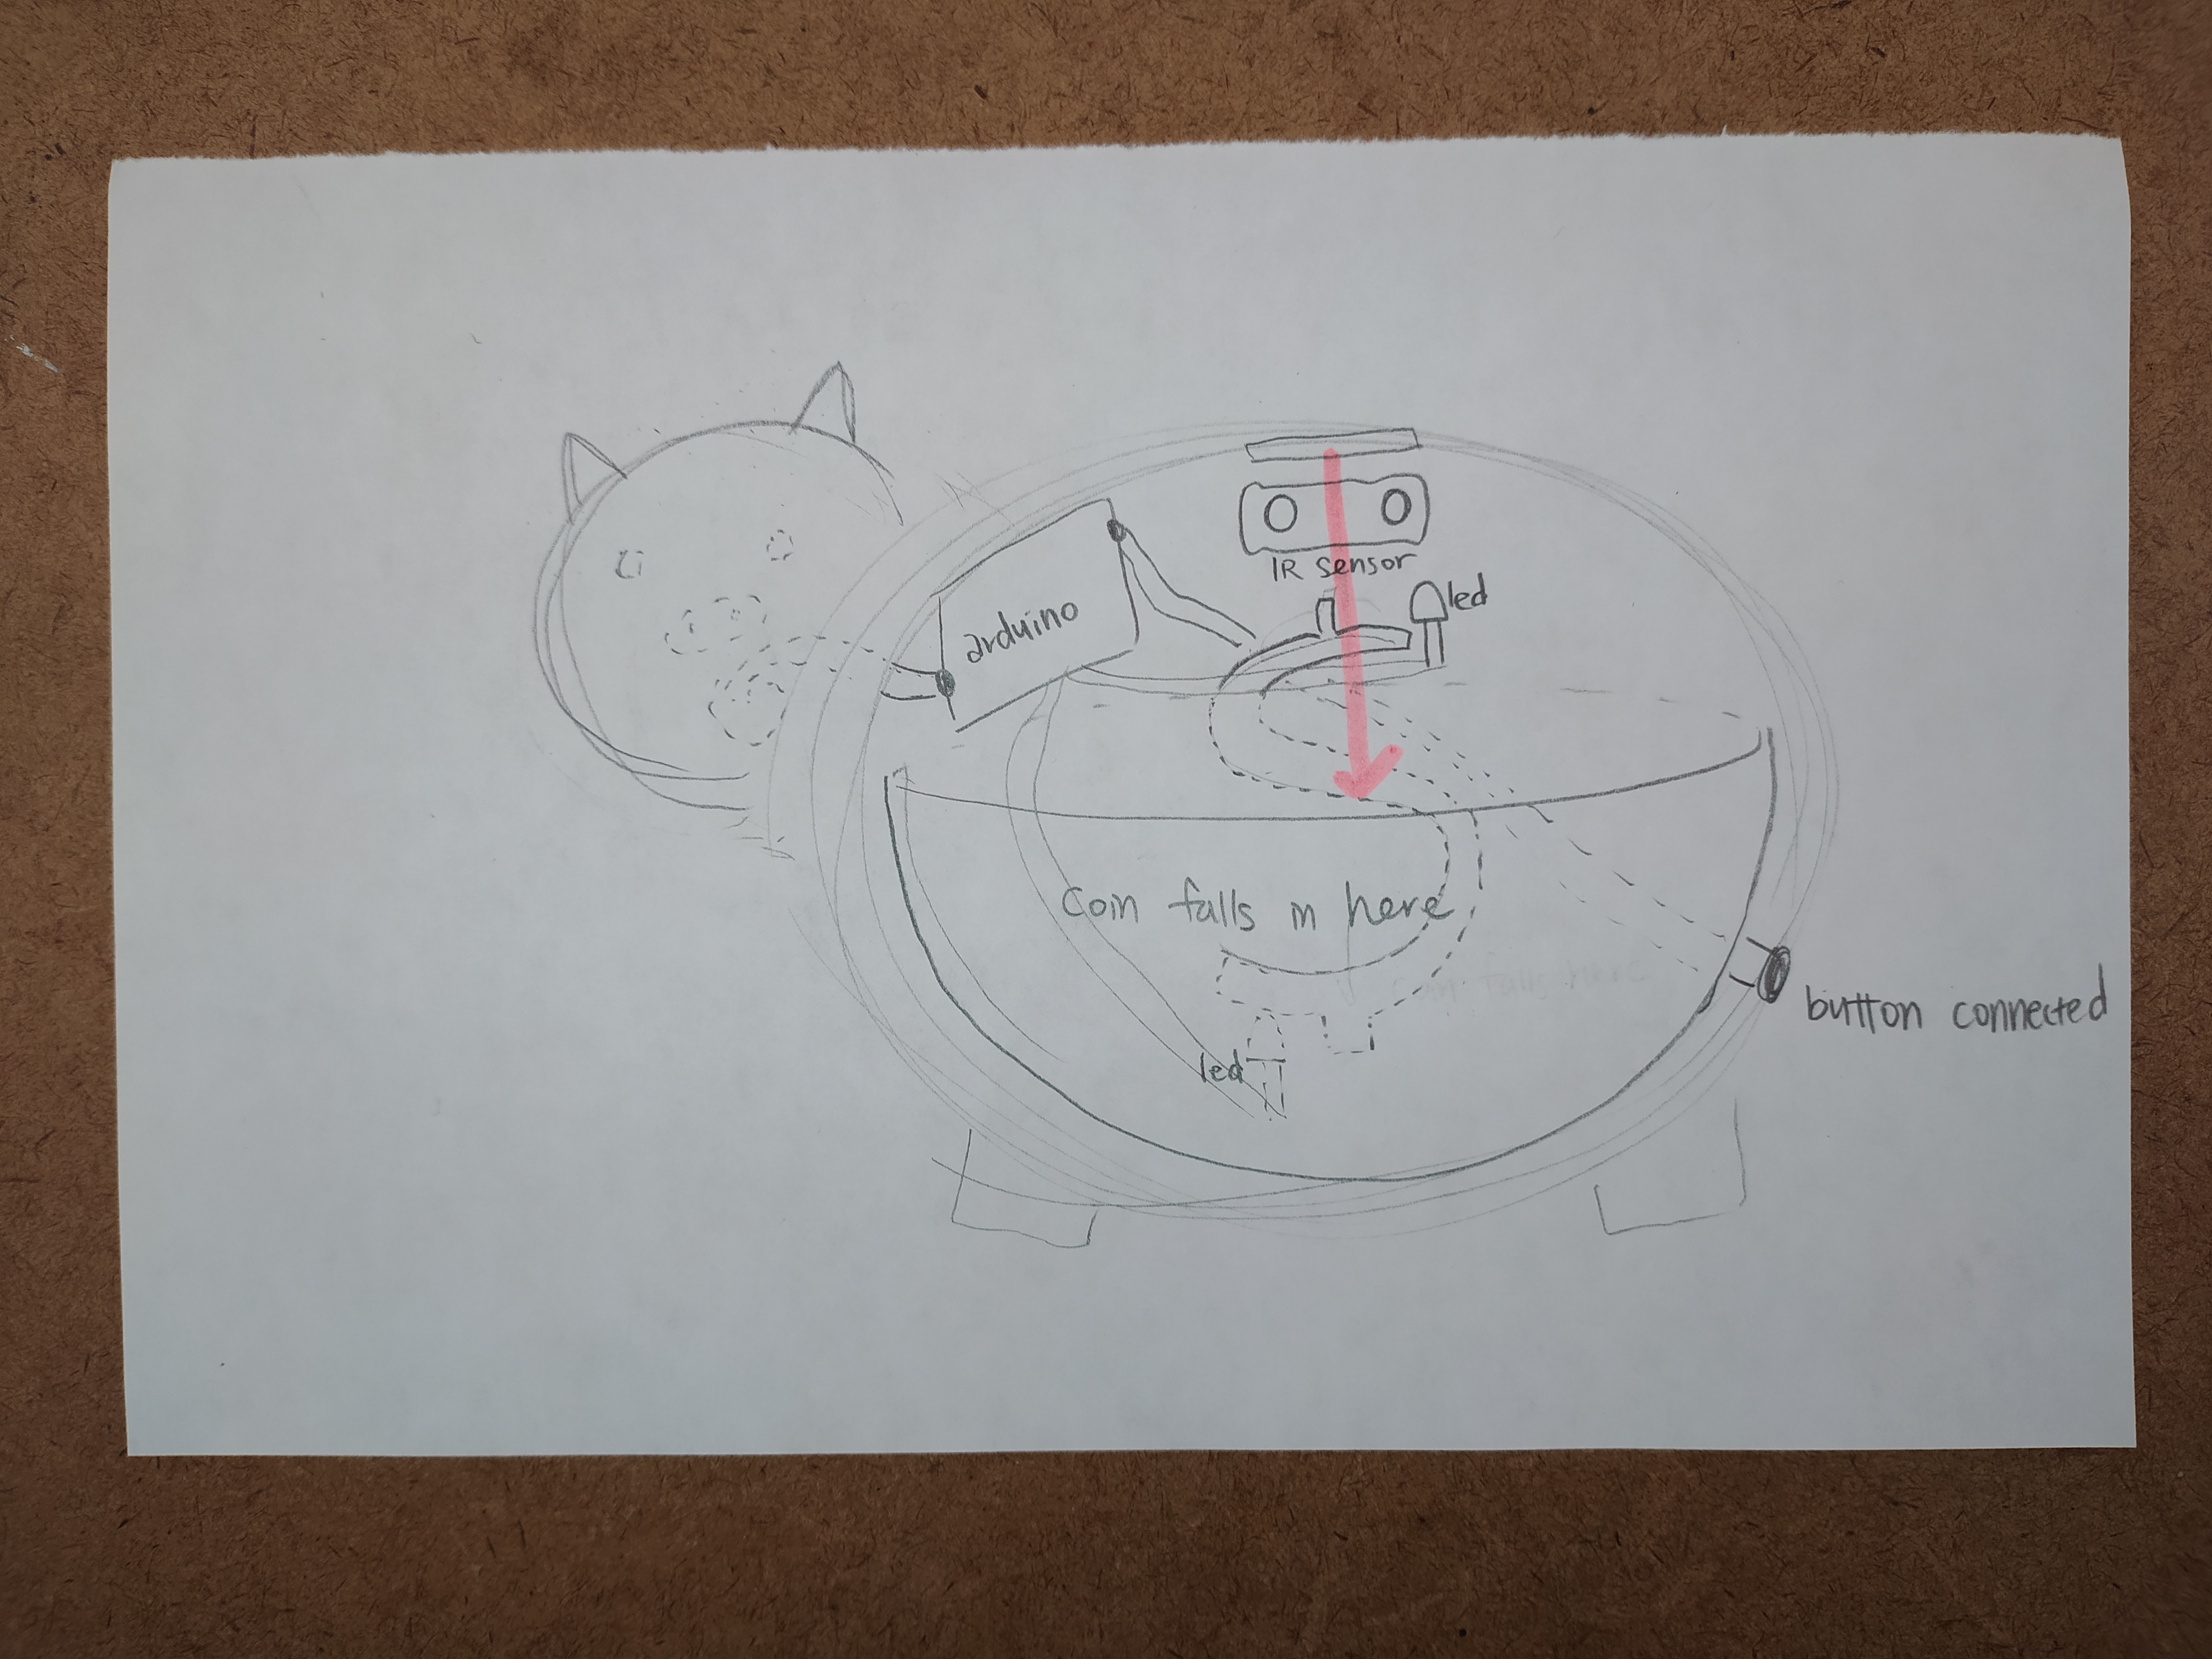 IR sensor
led
arduino
Coin falls in here
button connected
led